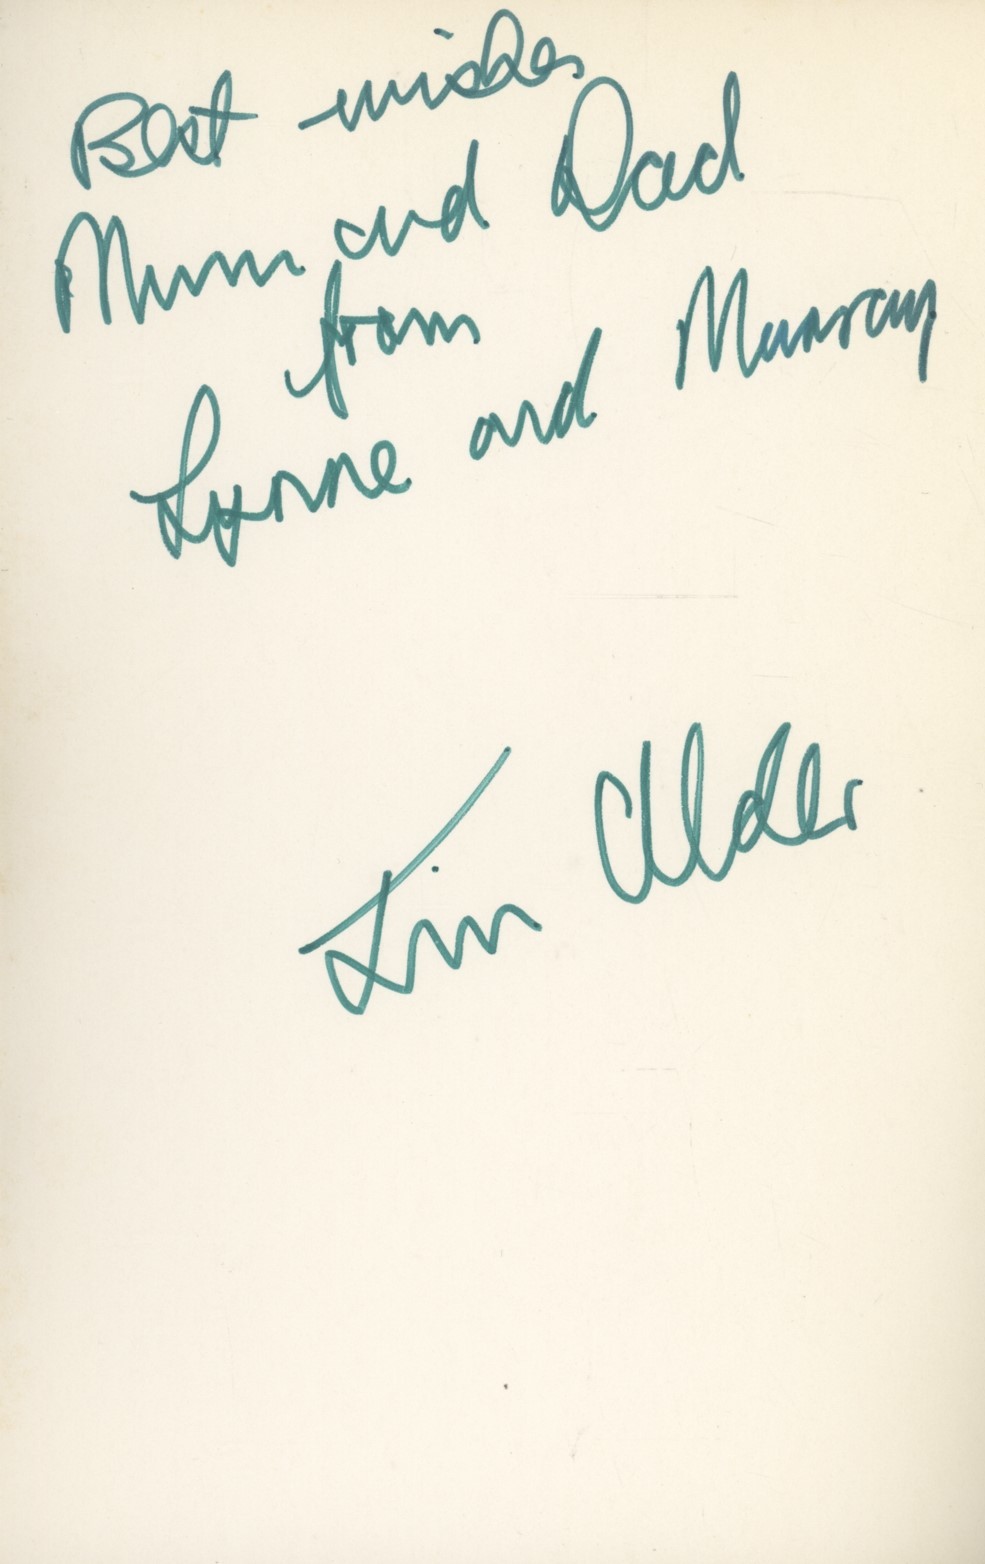 Best wishes
Mum and Dad
from
Lynne and Murray
Jim Alder